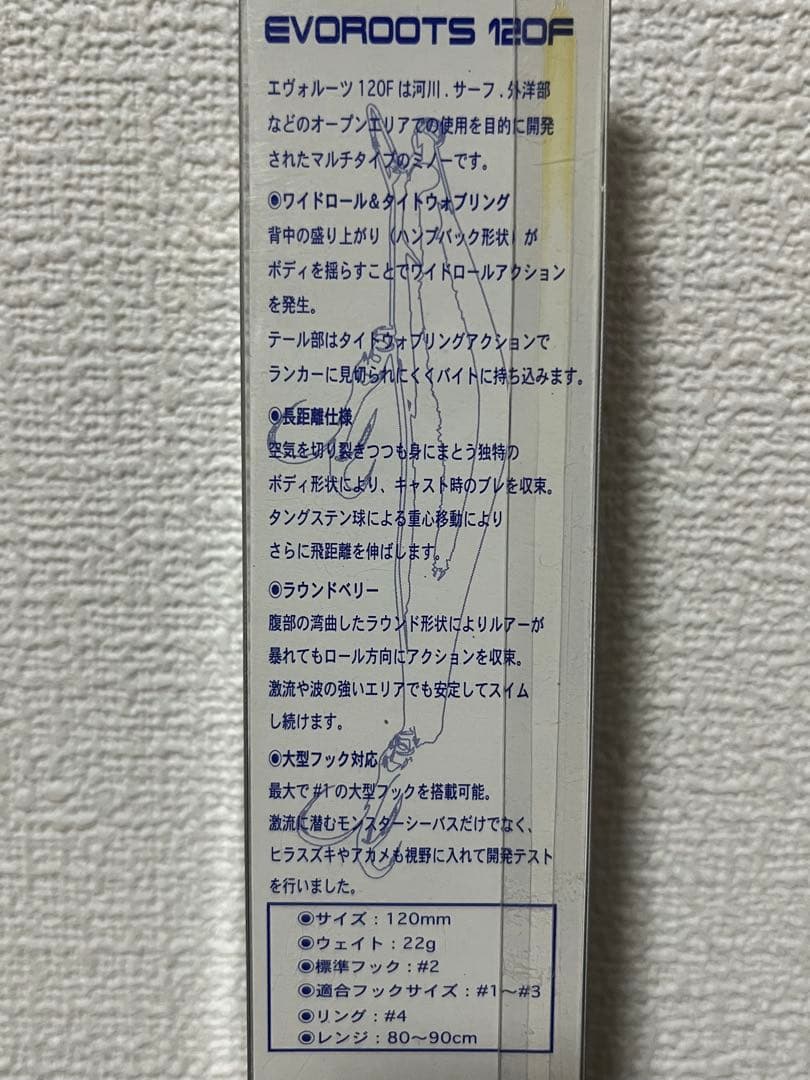 EVOROOTS 120F
エヴォルーツ120Fは河川．サーフ．外洋部
などのオープンエリアでの使用を目的に開発
されたマルチタイプのミノーです。
◉ワイドロール＆タイトウォブリング
背中の盛り上がり（ハンプバック形状）が
ボディを揺らすことでワイドロールアクション
を発生。
テール部はタイトウォブリングアクションで
ランカーに見切られにくくバイトに持ち込みます。
◉長距離仕様
空気を切り裂きつつも身にまとう独特の
ボディ形状により、キャスト時のブレを収束。
タングステン球による重心移動により
さらに飛距離を伸ばします。
◉ラウンドベリー
腹部の湾曲したラウンド形状によりルアーが
暴れてもロール方向にアクションを収束。
激流や波の強いエリアでも安定してスイム
し続けます。
◉大型フック対応
最大で#1の大型フックを搭載可能。
激流に潜むモンスターシーバスだけでなく、
ヒラスズキやアカメも視野に入れて開発テスト
を行いました。
◉サイズ：120mm
◉ウェイト：22g
◉標準フック：#2
◉適合フックサイズ：#1〜#3
◉リング：#4
◉レンジ：80〜90cm